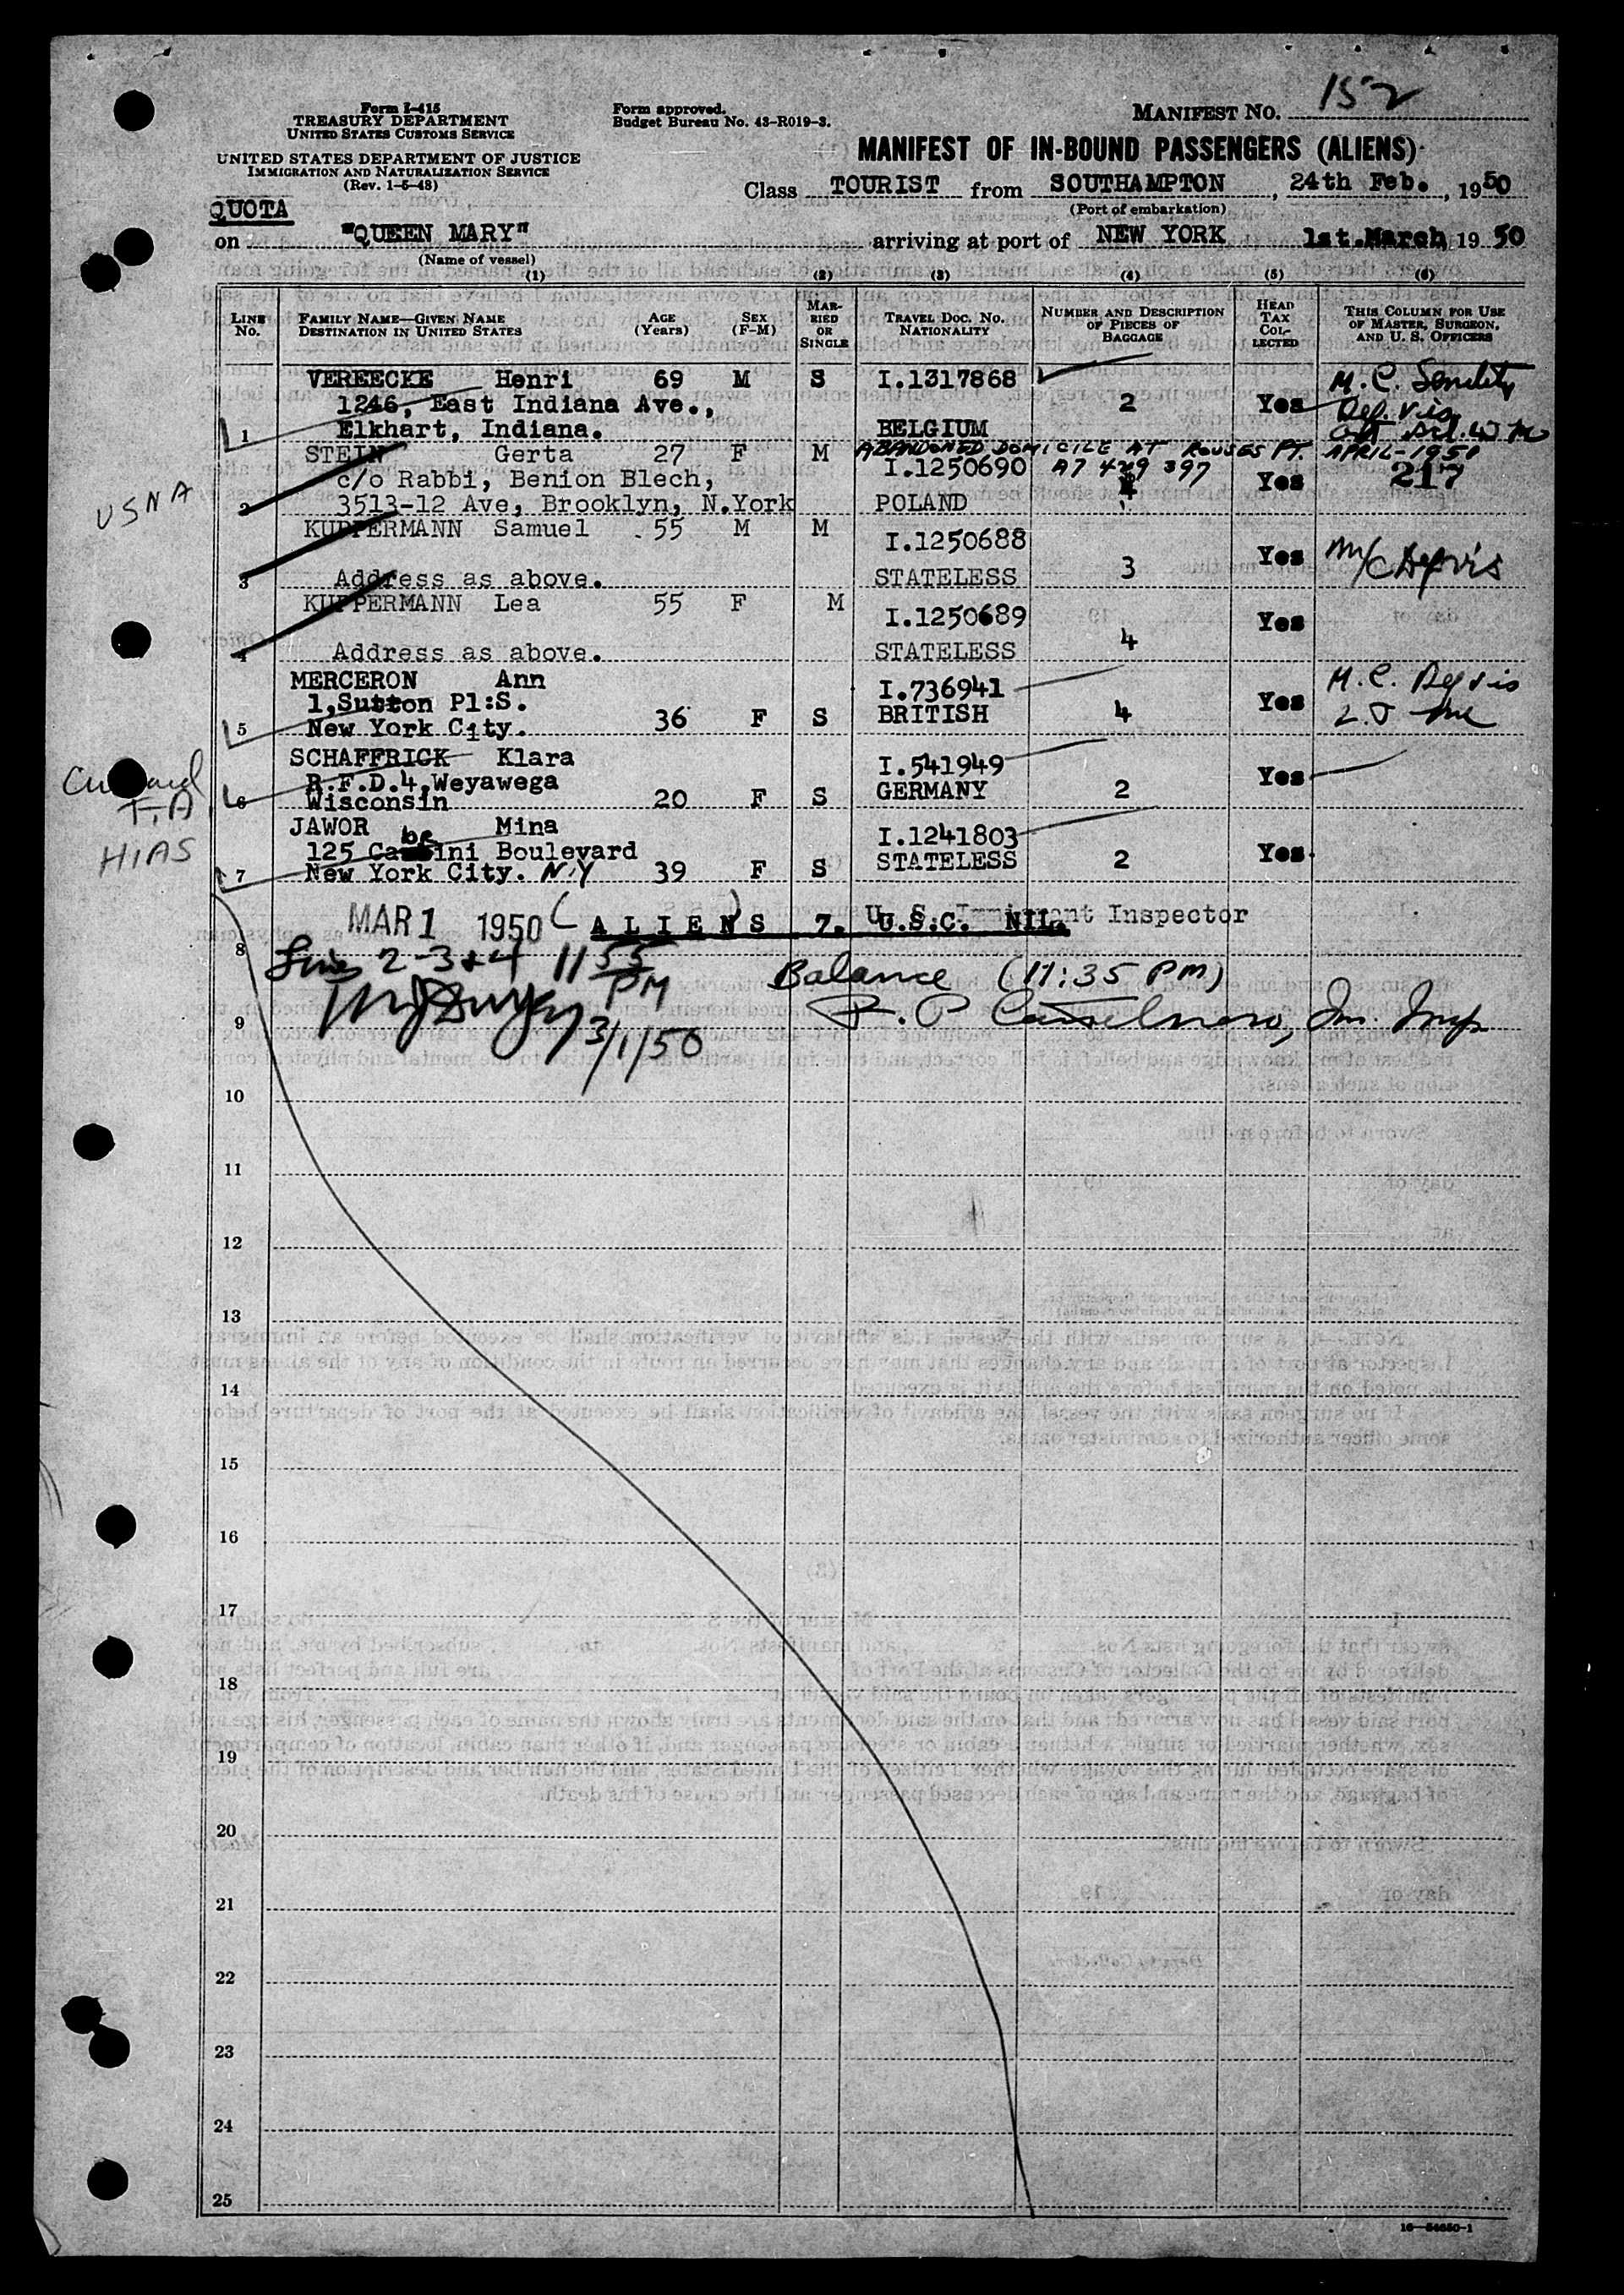 Form I-415
TREASURY DEPARTMENT
UNITED STATES CUSTOMS SERVICE
UNITED STATES DEPARTMENT OF JUSTICE
IMMIGRATION AND NATURALIZATION SERVICE
(Rev. 1-5-48)
Form approved.
Budget Bureau No. 43-R019-3.
MANIFEST NO. 152
MANIFEST OF IN-BOUND PASSENGERS (ALIENS)
Class TOURIST from SOUTHAMPTON, 24th Feb., 1950
(Port of embarkation)
QUOTA
on "QUEEN MARY" arriving at port of NEW YORK 1st.March, 1950
(Name of vessel)
(1) (2) (3) (4) (5) (6)
LINE No.
FAMILY NAME—GIVEN NAME
DESTINATION IN UNITED STATES
AGE (Years)
SEX (F-M)
MARRIED OR SINGLE
TRAVEL DOC. NO. NATIONALITY
NUMBER AND DESCRIPTION OF PIECES OF BAGGAGE
HEAD TAX COLLECTED
THIS COLUMN FOR USE OF MASTER, SURGEON, AND U. S. OFFICERS
VEREECKE Henri 69 M S I.1317868 M.C. Senility
1246, East Indiana Ave., 2 Yes Def. vis
1 Elkhart, Indiana. BELGIUM
ABANDONED DOMICILE AT ROUSES PT. APRIL-1951
STEIN Gerta 27 F M I.1250690 A7 429 397
c/o Rabbi, Benion Blech, 4 Yes 217
USNA
2 3513-12 Ave, Brooklyn, N.York POLAND
KUPPERMANN Samuel 55 M M I.1250688
3 Yes M/C Def vis
3 Address as above. STATELESS
KUPPERMANN Lea 55 F M I.1250689
4 Yes
4 Address as above. STATELESS
MERCERON Ann I.736941 M.C. Def vis
1,Sutton Pl:S. BRITISH 4 Yes
5 New York City. 36 F S
SCHAFFRICK Klara I.541949
Cunard
R.F.D.4,Weyawega GERMANY 2 Yes
6 Wisconsin 20 F S
F.A
JAWOR Mina I.1241803
be
125 Ca ini Boulevard STATELESS 2 Yes
HIAS
7 New York City. N.Y 39 F S
MAR 1 1950 (ALIENS) 7. U.S.C. NIL. U. S. Immigrant Inspector
8
Lines 2-3+4 11 55 PM
Balance (11:35 PM)
9
3/1/50
Im. Insp
10
11
12
13
14
15
16
17
18
19
20
21
22
23
24
25
16—54650-1